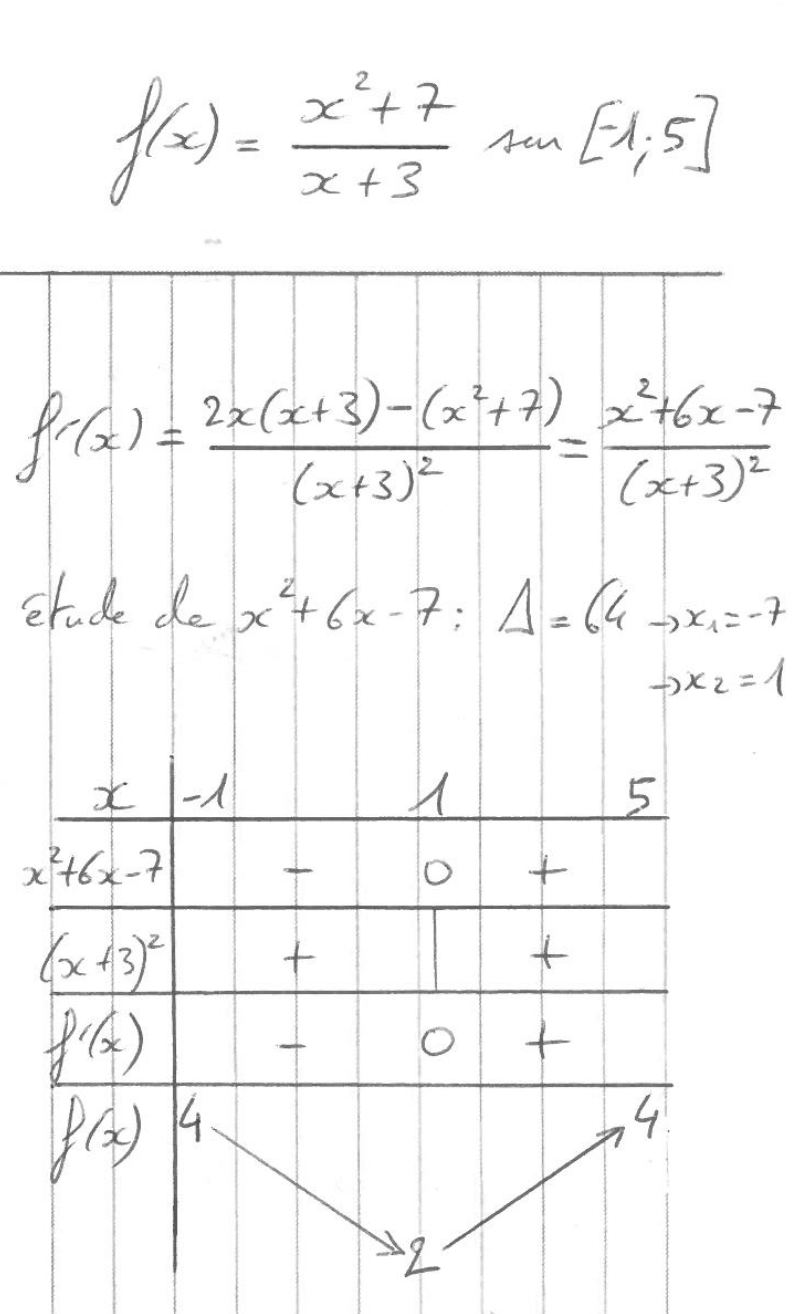 f(x) = (x²+7)/(x+3) sur [-1;5]
f'(x) = (2x(x+3)-(x²+7))/(x+3)² = (x²+6x-7)/(x+3)²
étude de x²+6x-7 : Δ = 64 → x₁=-7
→ x₂=1
x -1 1 5
x²+6x-7 - 0 +
(x+3)² + | +
f'(x) - 0 +
f(x) 4 ↘ 2 ↗ 4